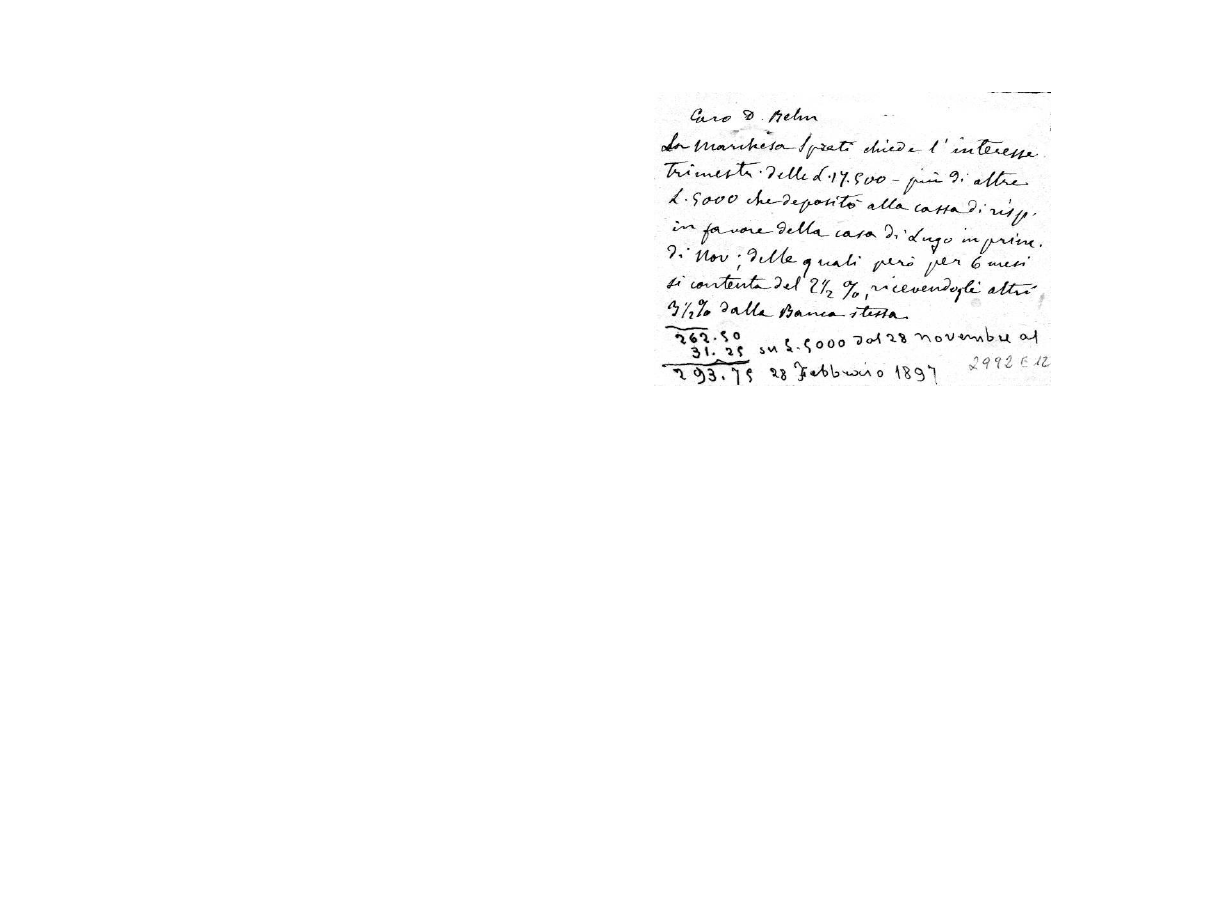 Caro D. Belm
La Marchesa Sprati chiede l'interesse
trimestr. delle L. 17.500 - più di altre
L. 5000 che depositò alla cassa di risp.
in favore della casa di Lugo in princ.
di Nov; delle quali però per 6 mesi
si contenta del 2 1/2 %, ricevendogli altri
3 1/2 % dalla Banca stessa.
262.50
31.25 su L. 5000 dal 28 novembre al
293.75 28 Febbraio 1897
2992 E 12